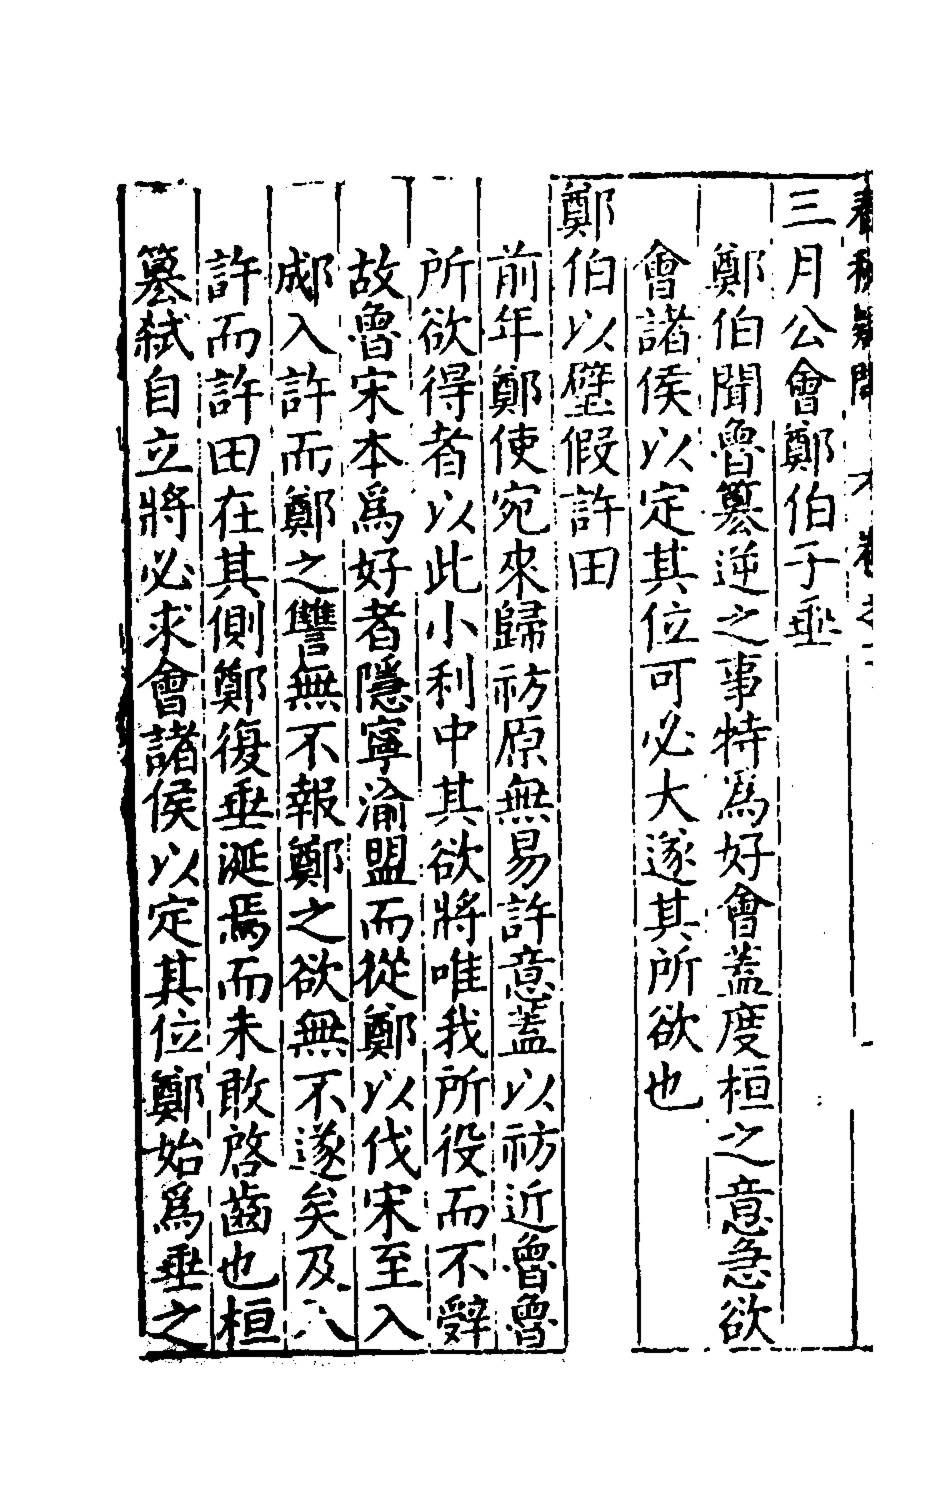 三月公會鄭伯于垂
鄭伯聞魯篡逆之事特爲好會蓋度桓之意急欲
會諸侯以定其位可必大遂其所欲也
鄭伯以璧假許田
前年鄭使宛來歸祊原無易許意蓋以祊近魯魯
所欲得者以此小利中其欲將唯我所役而不辭
故魯宋本爲好者隱寧渝盟而從鄭以伐宋至入
郕入許而鄭之讐無不報鄭之欲無不遂矣及入
許而許田在其側鄭復垂涎焉而未敢啓齒也桓
篡弒自立將必求會諸侯以定其位鄭始爲垂之